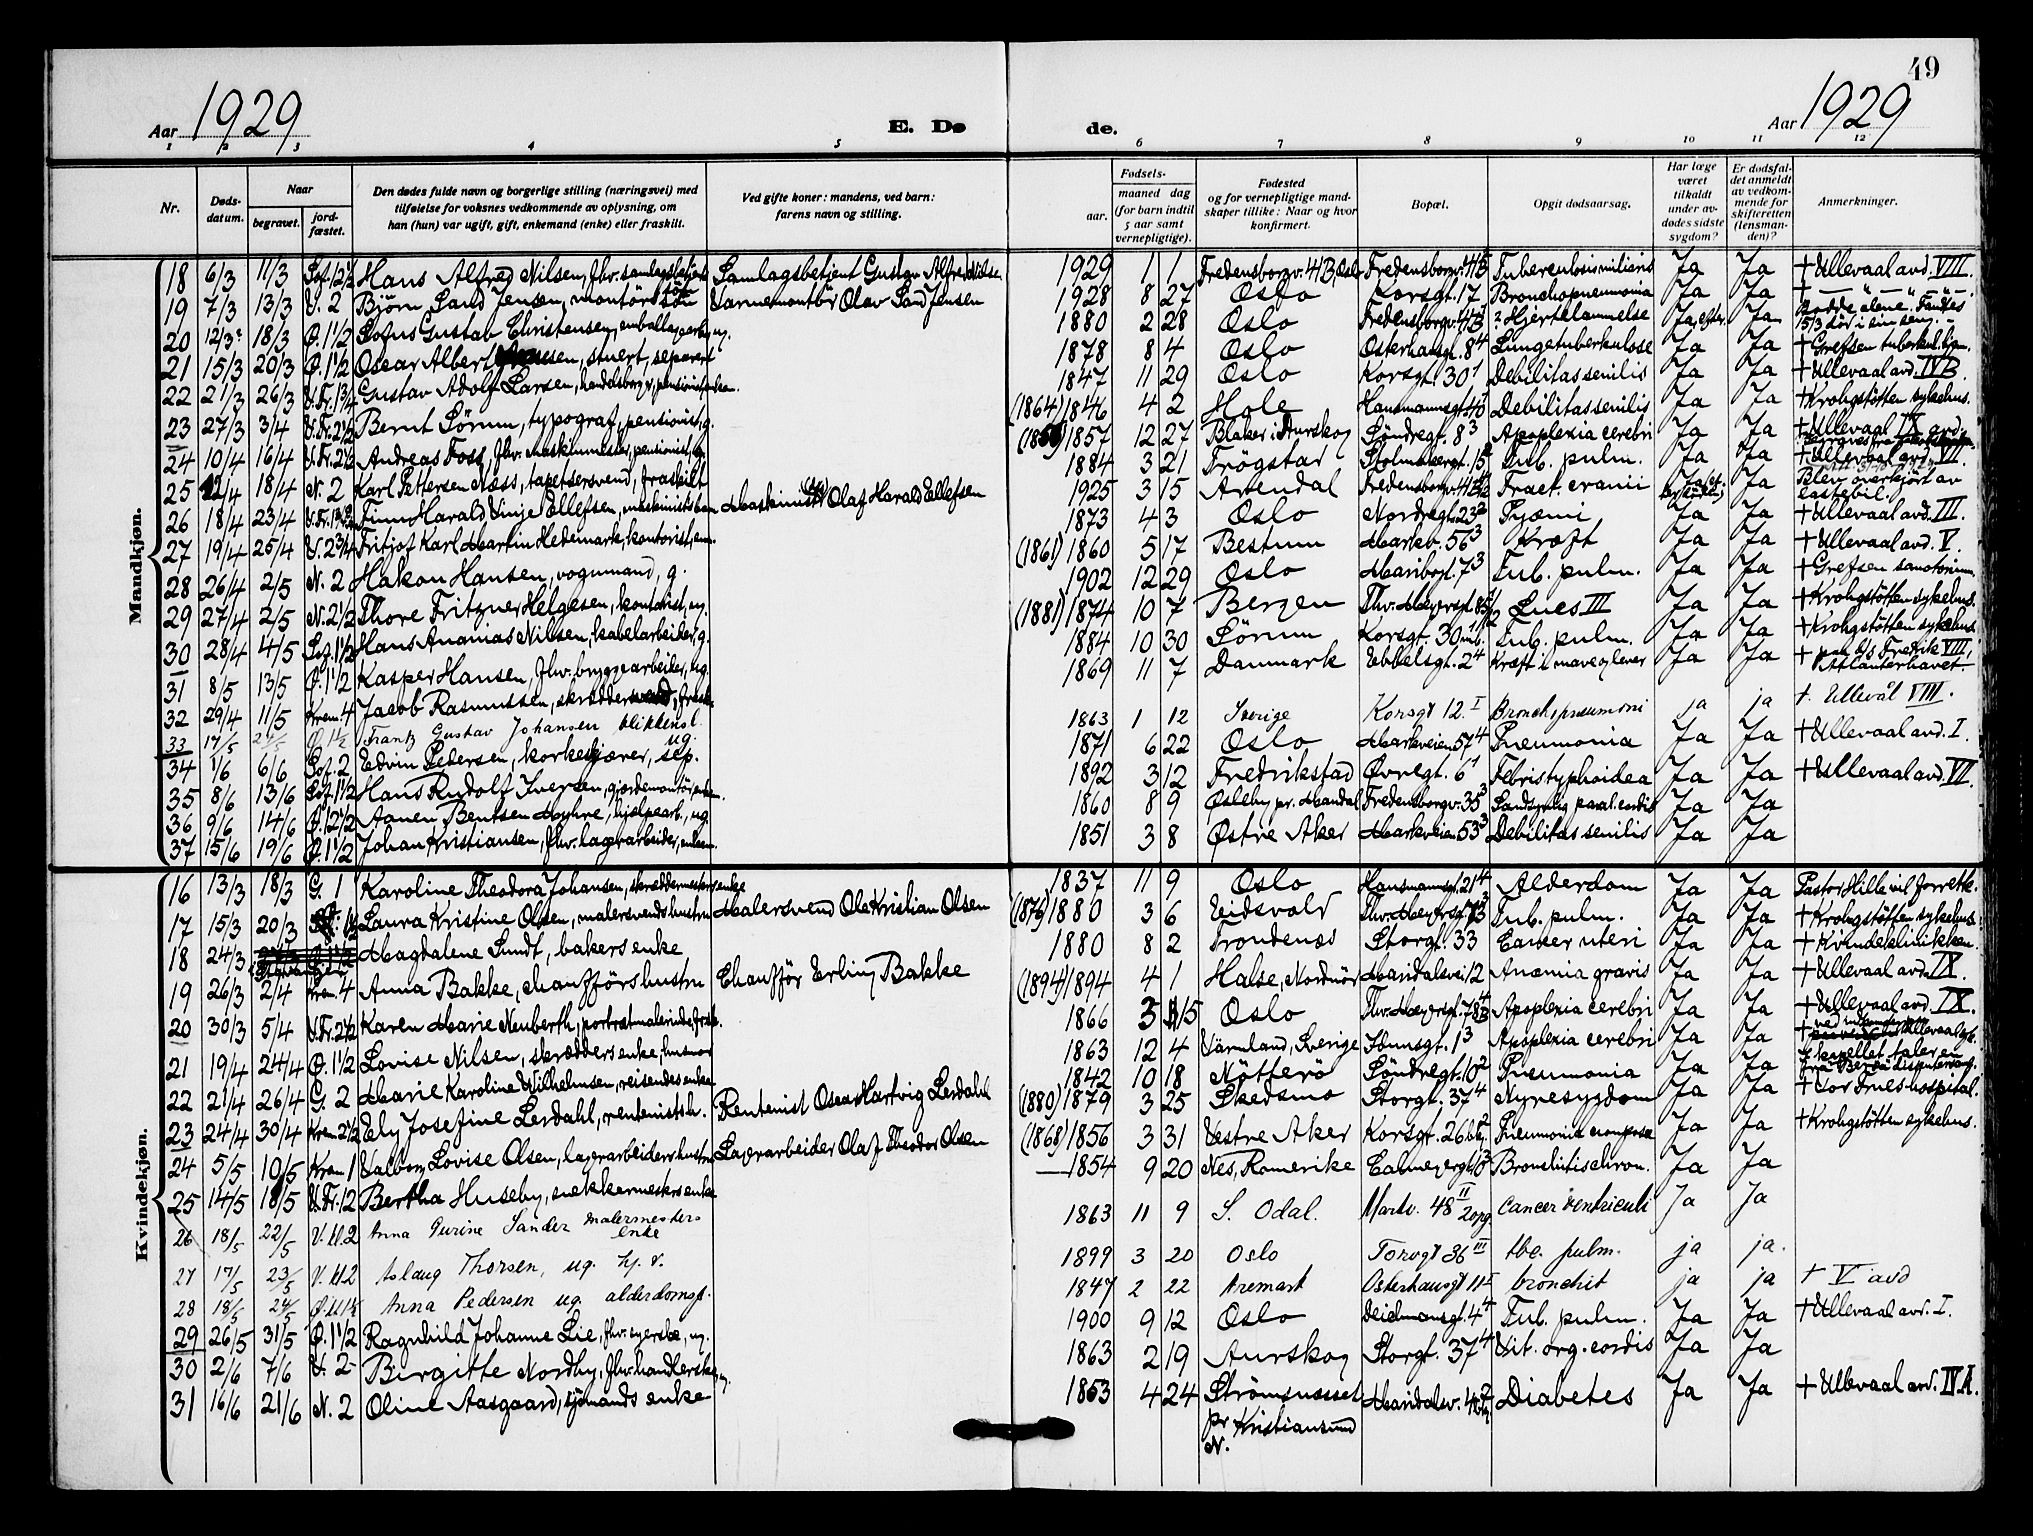 49
Aar 1929 E. Dø de. Aar 1929
1 2 3 4 5 6 7 8 9 10 11 12
Nr.
Døds-datum.
Naar
begravet.
jord-fæstet.
Den dødes fulde navn og borgerlige stilling (næringsvei) med
tilføielse for voksnes vedkommende av oplysning, om
han (hun) var ugift, gift, enkemand (enke) eller fraskilt.
Ved gifte koner: mandens, ved barn:
farens navn og stilling.
Fødsels-
aar.
maaned dag
(for barn indtil
5 aar samt
vernepligtige).
Fødested
og for vernepligtige mand-
skaper tillike: Naar og hvor
konfirmert.
Bopæl.
Opgit dødsaarsag.
Har læge
været
tilkaldt
under av-
dødes sidste
sygdom?
Er dødsfal-
det anmeldt
av vedkom-
mende for
skifteretten
(lensman-
den)?
Anmerkninger.
Mandkjøn.
18 6/3 11/3 Sof. 12½ Hans Alfred Nilsen, fhv. samlagsbetjents Samlagsbetjent Gustav Alfred Nilsen 1929 1 1 Fredensborgv. 41B, Oslo Fredensborgv. 41B Tuberculosis miliaris Ja Ja + Ullevaal avd. VIII.
19 7/3 13/3 V. 2 Bjørn Sand Jensen, montørs søn Varmemontör Olav Sand Jensen 1928 8 27 Oslo Korsgt. 17 Bronchopneumonia Ja Ja + — " — " —
20 12/3 18/3 Ø. 1½ Sofus Gustav Christensen, emballagearb., ug. 1880 2 28 Oslo Fredensborgv. 41B ? Hjerteklammelse Ja, efter. Ja Bodde alene. Fandtes 15/3 död i sin seng.
21 15/3 20/3 Ø. 1½ Oscar Albert, stuert, separert 1878 8 4 Oslo Osterhausgt. 8⁴ Lungetuberkulose Ja Ja + Grefsen tuberkul. hjem.
22 21/3 26/3 V. Fr. 1¾ Gustav Adolf Larsen, handelsborger, pensionist, enkem. 1847 11 29 Oslo Korsgt. 30¹ Debilitas senilis Ja Ja + Ullevaal avd. IVB.
23 27/3 3/4 V. Fr. 2½ Bernt Sörum, typograf, pensionist, g. (1864) 1846 4 2 Hole Hausmannsgt. 40 Debilitas senilis Ja Ja + Krohgstötten sykehus.
24 10/4 16/4 V. Fr. 2½ Andreas Foss, fhv. maskinmester, pensionist, g. 1857 12 27 Blaker i Aurskog Söndregt. 8³ Apoplexia cerebri Ja Ja + Ullevaal IX avd.
25 12/4 18/4 N. 2 Karl Pettersen Næss, tapetsersvend, fraskilt 1884 3 21 Trögstad Stolmakergt. 15 Tub. pulm. Ja Ja + Ullevaal avd. VII.
26 18/4 23/4 V. Fr. Finn Harald Vinje Ellefsen, maskinists barn Maskinist Olaf Harald Ellefsen 1925 3 15 Arendal Fredensborgv. 41B Fract. cranii Ja Ja Blev overkjört av lastebil.
27 19/4 25/4 V. 2¾ Fritjof Karl Martin Hedemark, kontorist, enm. 1873 4 3 Oslo Nordregt. 23² Pyæmi Ja Ja + Ullevaal avd. III.
28 26/4 2/5 N. 2 Hakon Hansen, vognmand, g. (1861) 1860 5 17 Bestum Markv. 56³ Kræft Ja Ja + Ullevaal avd. V.
29 27/4 2/5 N. 2½ Thore Fritzner Helgesen, kontorist, ug. 1902 12 29 Oslo Maribogt. 7³ Tub. pulm. Ja Ja + Grefsen sanatorium.
30 28/4 4/5 Sof. 1½ Hans Ananias Nilsen, kabelarbeider, g. (1881) 1874 10 7 Bergen Thv. Meyersgt. 85 Lues III Ja Ja + Krohgstötten sykehus.
31 8/5 13/5 Ø. 1½ Kasper Hansen, fhv. bryggearbeider, ug. 1884 10 30 Sörum Korsgt. 30 Tub. pulm. Ja Ja + Krohgstötten sykehus.
32 29/4 11/5 Krem. 4 Jacob Rasmussen, skræddersvend, frask. 1869 11 7 Danmark Ebbelsgt. 2⁴ Kræft i mave og lever Ja Ja + paa D/S Fredrik VIII, Atlanterhavet.
33 17/5 Ø. 1½ Frantz Gustav Johansen blikkensl. ug. 1863 1 12 Sverige Korsgt 12.I Bronch, pneumoni ja ja †. Ullevål VIII.
34 1/6 6/6 Sof. 2 Edvin Pedersen, korkeskjærer, sep. 1871 6 22 Oslo Markveien 57⁴ Pneumonia Ja Ja + Ullevaal avd. I.
35 8/6 13/6 Sof. 1½ Hans Rudolf Iversen, gjordemontör, 1892 3 12 Fredrikstad Øvregt. 6¹ Febris typhoidea Ja Ja + Ullevaal avd. VII.
36 9/6 14/6 Ø. 12½ Aanen Bentsen Myhre, hjelpearb., ug. 1860 8 9 Øsleby pr. Mandal Fredensborgv. 35³ Sandsynlig paral. cordis Ja Ja
37 15/6 19/6 Ø. 1½ Johan Kristiansen, fhv. lagerarbeider, enkem. 1851 3 8 Østre Aker Markveien 53³ Debilitas senilis Ja Ja
Kvindekjøn.
16 13/3 18/3 G. 1 Karoline Theodora Johansen, skræddermesters enke 1837 11 9 Oslo Hausmannsgt. 21⁴ Alderdom Ja Ja Pastor Hille vil forrette.
17 15/3 20/3 Laura Kristine Olsen, malersvends hustru Malersvend Ole Kristian Olsen (1876) 1880 3 6 Eidsvold Thv. Meyersgt. Tub. pulm. Ja Ja + Krohgstötten sykehus.
18 24/3 Magdalene Sundt, bakers enke 1880 8 2 Trondenæs Storgt. 33 Cancer uteri Ja Ja + Kvindeklinikken.
19 26/3 2/4 Krem. 4 Anna Bakke, chaufförs hustru Chaufför Erling Bakke (1894) 1894 4 1 Halse, Nordmör Maridalsvei 12 Anæmia gravis Ja Ja + Ullevaal avd. IX.
20 30/3 5/4 V. Fr. 2½ Karen Marie Neuberth, portrætmalerinde, frask. 1866 3 15 Oslo Thv. Meyersgt. 78 Apoplexia cerebri Ja Ja + Ullevaal avd. IX.
21 19/4 24/4 Ø. 1½ Lovise Nilsen, skrædders enke, husmor 1863 12 4 Värmland, Sverige Idunsgt. 1³ Apoplexia cerebri Ja Ja
22 21/4 26/4 G. 2 Marie Karoline Wilhelmsen, reisendes enke 1842 10 18 Nötterö Söndregt. 10² Pneumonia Ja Ja I kapellet taler en
23 24/4 30/4 Krem. 2½ Ely Josefine Lerdahl, rentenists h. Rentenist Oscar Hartvig Lerdahl (1880) 1879 3 25 Skedsmo Storgt. 37⁴ Nyresygdom Ja Ja + Vor Frues hospital.
24 5/5 10/5 Krem. 1 Valborg Lovise Olsen, lagerarbeiders hustru Lagerarbeider Olaf Theodor Olsen (1868) 1856 3 31 Vestre Aker Korsgt. 26 Pneumonia crouposa Ja Ja + Krohgstötten sykehus.
25 14/5 18/5 V. Fr. 12 Bertha Huseby, snekkermesters enke 1854 9 20 Nes, Romerike Calmeyergt. Bronchitis chron. Ja Ja
26 18/5 22/5 V. kl. 2 Anna Gurine Sander malermesters enke 1863 11 9 S. Odal. Markv. 48 II 2 opg. Cancer ventriculi Ja Ja
27 17/5 23/5 V. kl. 2 Aslaug Thorsen, ug. 1899 3 20 Oslo Torvgt 36 III tbc. pulm. ja ja.
28 18/5 24/5 Anna Pedersen ug. alderdomspl. 1847 2 22 Aremark Osterhausgt 11 bronchit ja ja + V avd
29 26/5 31/5 Ø. 1½ Ragnhild Johanne Lie, fhv. syerske, ug. 1900 9 12 Oslo Deichmansgt. 4⁴ Tub. pulm. Ja Ja + Ullevaal avd. I.
30 2/6 7/6 V. 2 Birgitte Nordby, fhv. handlerske, ug. 1863 2 19 Aurskog Storgt. 37⁴ Vit. org. cordis Ja Ja
31 16/6 21/6 N. 2 Oline Aasgaard, sjömands enke 1853 4 24 Strömsnesset pr Kristiansund N. Maridalsv. Diabetes Ja Ja + Ullevaal avd. IVA.